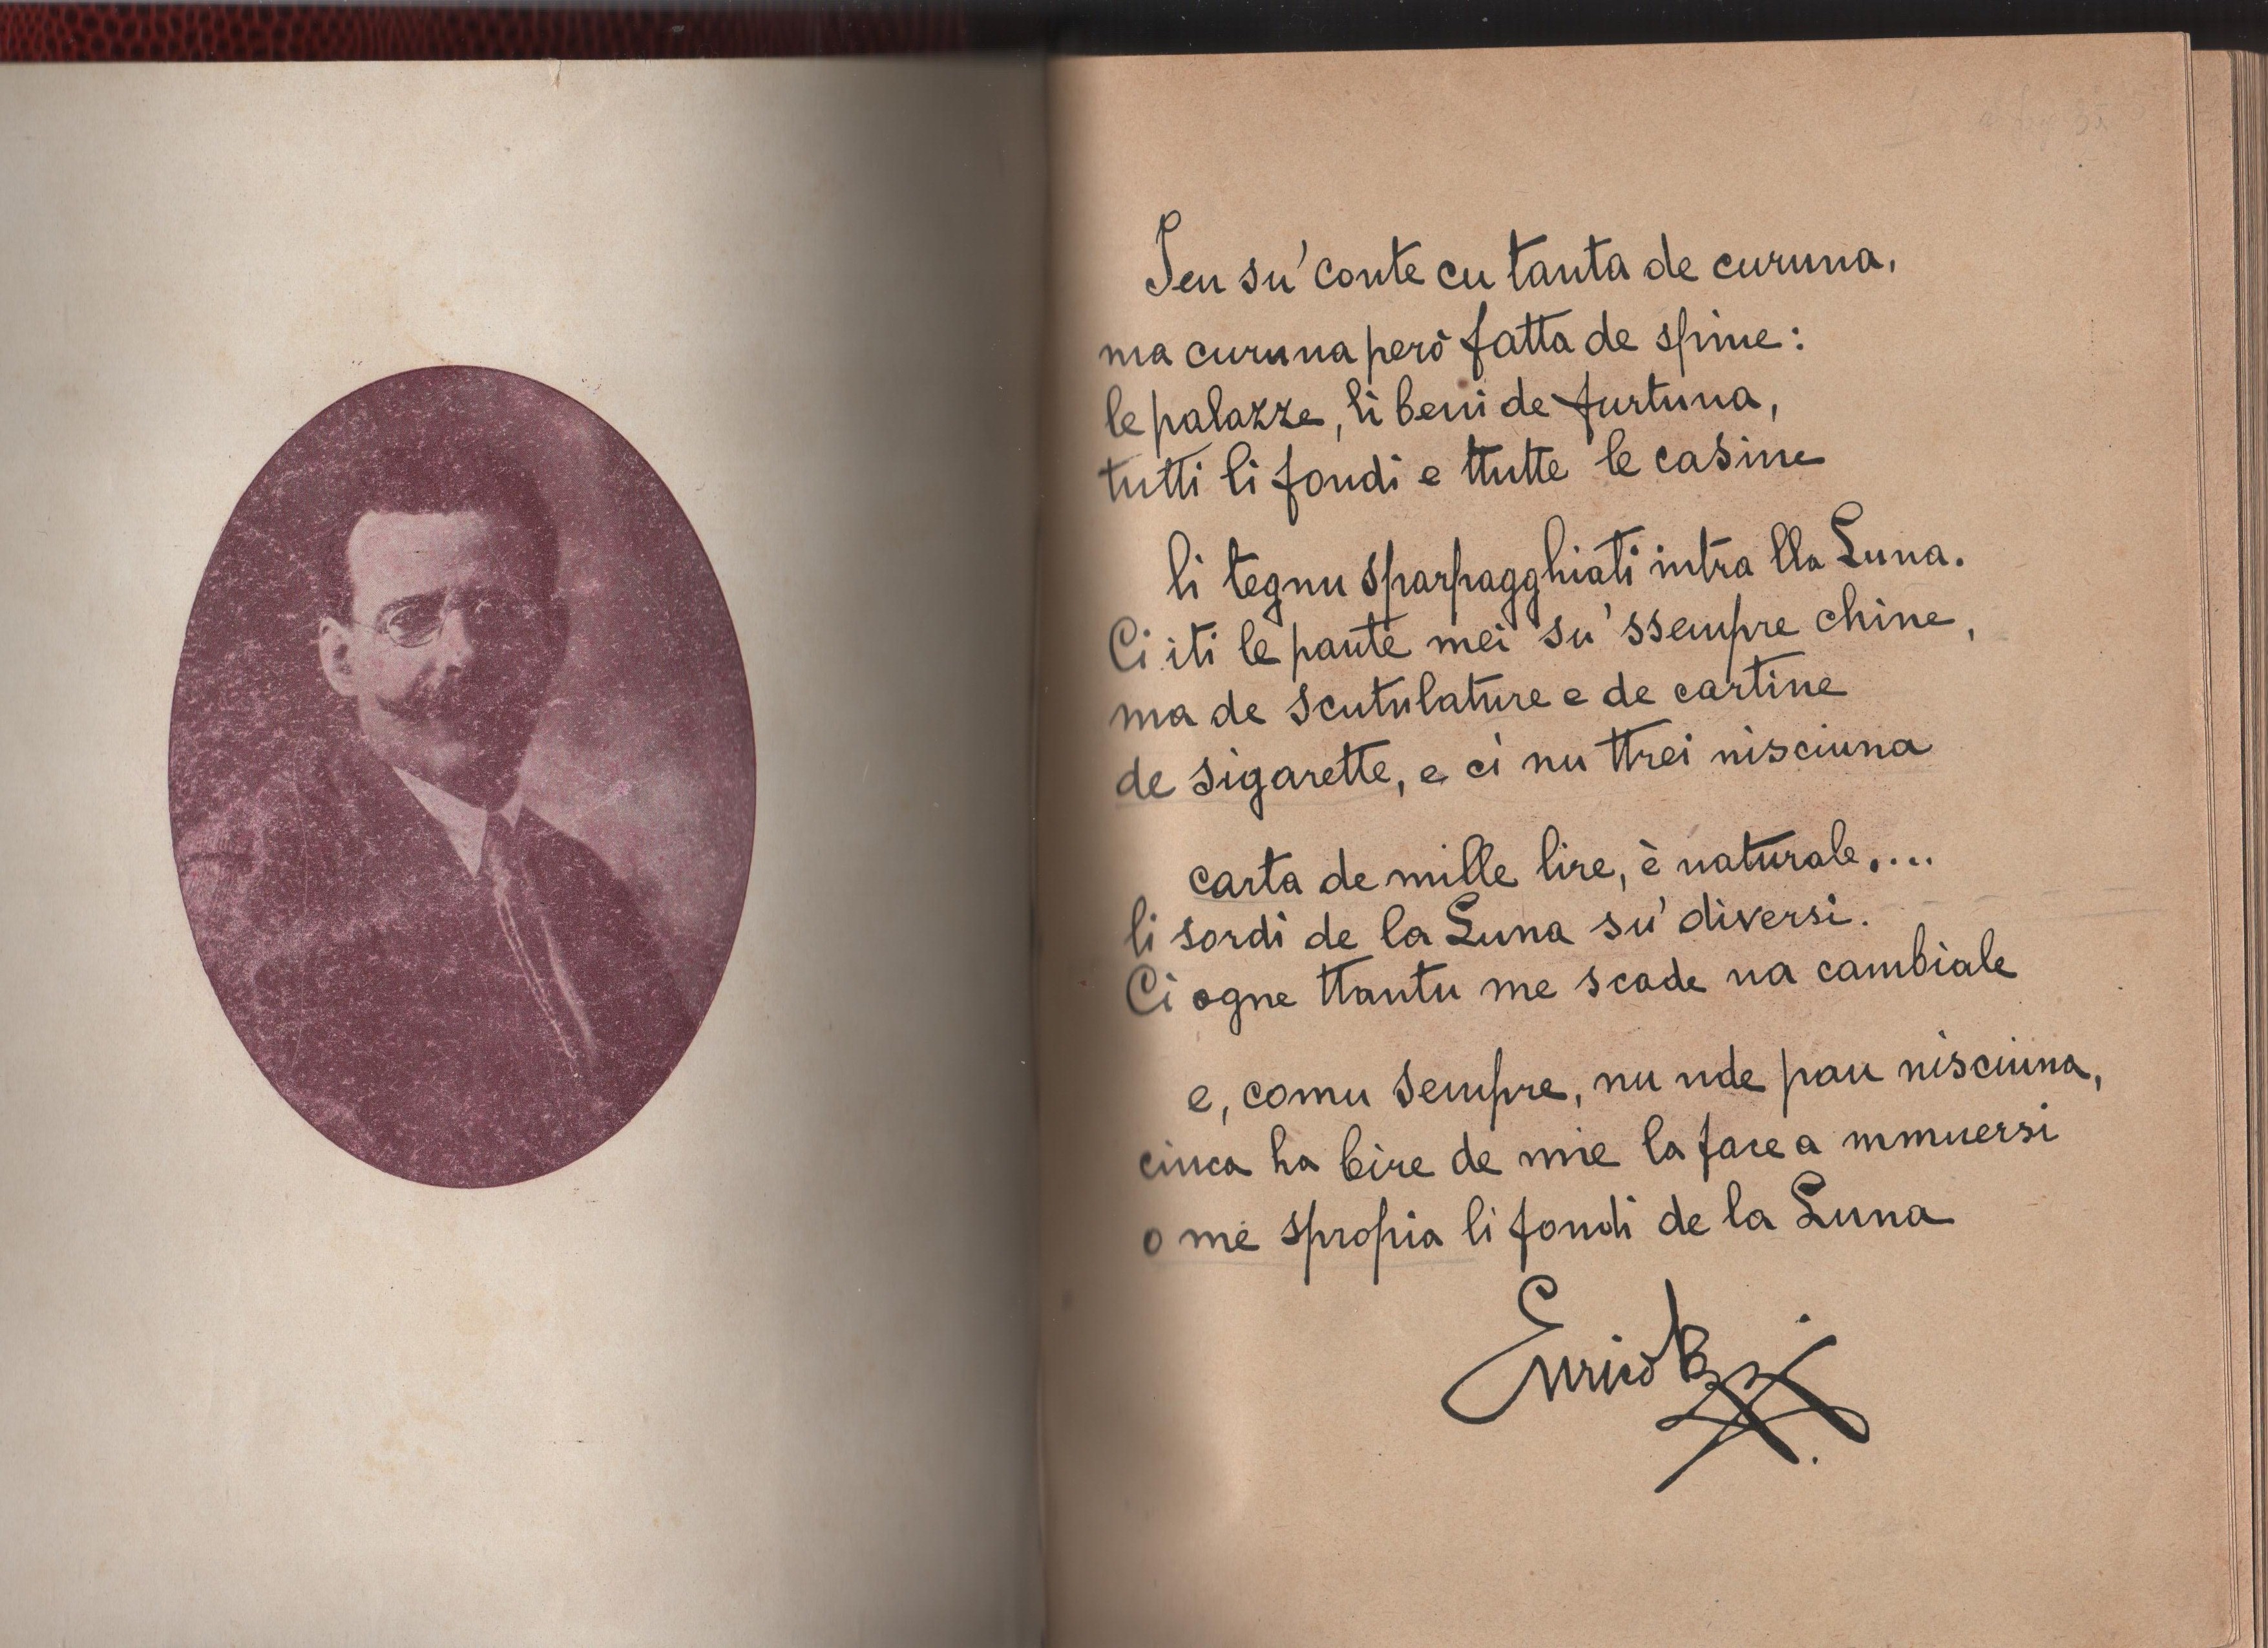 Jeu su' conte cu tanta de curuna,
ma curuna però fatta de spine:
le palazze, li beni de furtuna,
tutti li fondi e ttutte le casine
li tegnu sparpagghiati intra lla Luna.
Ci iti le paute mei su' ssempre chine,
ma de scutulature e de cartine
de sigarette, e ci nu ttrei nisciuna
carta de mille lire, è naturale....
li sordi de la Luna su' diversi.
Ci ogne ttantu me scade na cambiale
e, comu sempre, nu nde pau nisciuna,
cinca ha bire de mie la face a mmuersi
o me spropia li fondi de la Luna
Enrico Bozzi